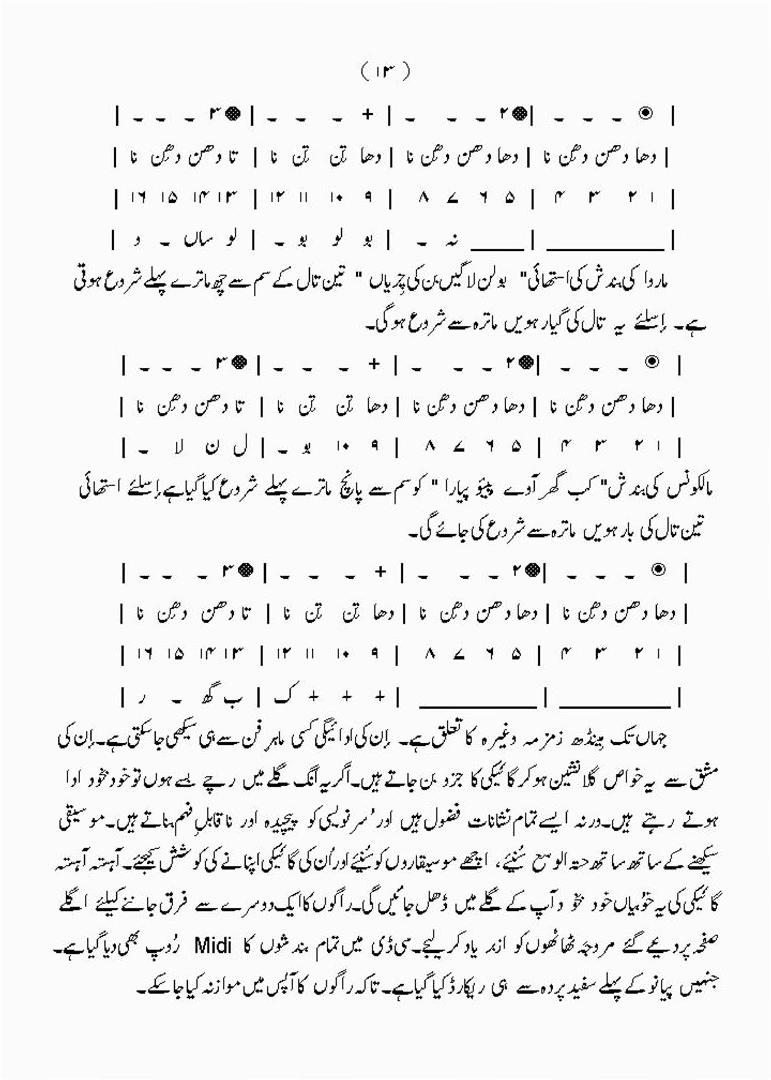 ( ۱۳ )
| ◉ - - - |●۲ - - - | + - - - |●۳ - - - |
| دھا دھن دھن نا | دھا دھن دھن نا | دھا تن تن نا | تا دھن دھن نا |
| ۱ ۲ ۳ ۴ | ۵ ۶ ۷ ۸ | ۹ ۱۰ ۱۱ ۱۲ | ۱۳ ۱۴ ۱۵ ۱۶ |
| ______ | ____ نہ - | بو لو بو - | لو ساں - و |
ماروا کی بندش کی استھائی" بولن لاگیں بن کی چڑیاں " تین تال کے سم سے چھ ماترے پہلے شروع ہوتی
ہے۔ اِسلئے یہ تال کی گیارہویں ماترہ سے شروع ہوگی۔
| ◉ - - - |●۲ - - - | + - - - |●۳ - - - |
| دھا دھن دھن نا | دھا دھن دھن نا | دھا تن تن نا | تا دھن دھن نا |
| ۱ ۲ ۳ ۴ | ۵ ۶ ۷ ۸ | ۹ ۱۰ بو - | ل ن لا - |
مالکونس کی بندش" کب گھر آوے پیئو پیارا " کو سم سے پانچ ماترے پہلے شروع کیا گیا ہے اِسلئے استھائی
تین تال کی بارہویں ماترہ سے شروع کی جائے گی۔
| ◉ - - - |●۲ - - - | + - - - |●۳ - - - |
| دھا دھن دھن نا | دھا دھن دھن نا | دھا تن تن نا | تا دھن دھن نا |
| ۱ ۲ ۳ ۴ | ۵ ۶ ۷ ۸ | ۹ ۱۰ ۱۱ ۱۲ | ۱۳ ۱۴ ۱۵ ۱۶ |
| ______ | ______ | + + + ک | ب گھ - ر |
جہاں تک مینڈھ زمزمہ وغیرہ کا تعلق ہے۔ اِن کی ادائیگی کسی ماہر فن سے ہی سیکھی جاسکتی ہے۔ اِن کی
مشق سے یہ خواص گلا نشین ہوکر گائیکی کا جزو بن جاتے ہیں۔ اگر یہ آنگ گلے میں رچے بسے ہوں تو خود بخود ادا
ہوتے رہتے ہیں۔ ورنہ ایسے تمام نشانات فضول ہیں اور سُر نویسی کو پیچیدہ اور ناقابلِ فہم بناتے ہیں۔ موسیقی
سیکھنے کے ساتھ ساتھ حتہ الوسع سُنیئے، اچھے موسیقاروں کو سُنیئے اور اُن کی گائیکی اپنانے کی کوشش کیجیئے۔ آہستہ آہستہ
گائیکی کی یہ خوبیاں خود بخود آپ کے گلے میں ڈھل جائیں گی۔ راگوں کا ایک دوسرے سے فرق جاننے کیلئے اگلے
صفحہ پر دیے گئے مروجہ ٹھاٹھوں کو ازبر یاد کر لیجے۔ سی ڈی میں تمام بندشوں کا Midi رُوپ بھی دیا گیا ہے۔
جنہیں پیانو کے پہلے سفید پردہ سے ہی ریکارڈ کیا گیا ہے۔ تاکہ راگوں کا آپس میں موازنہ کیا جا سکے۔